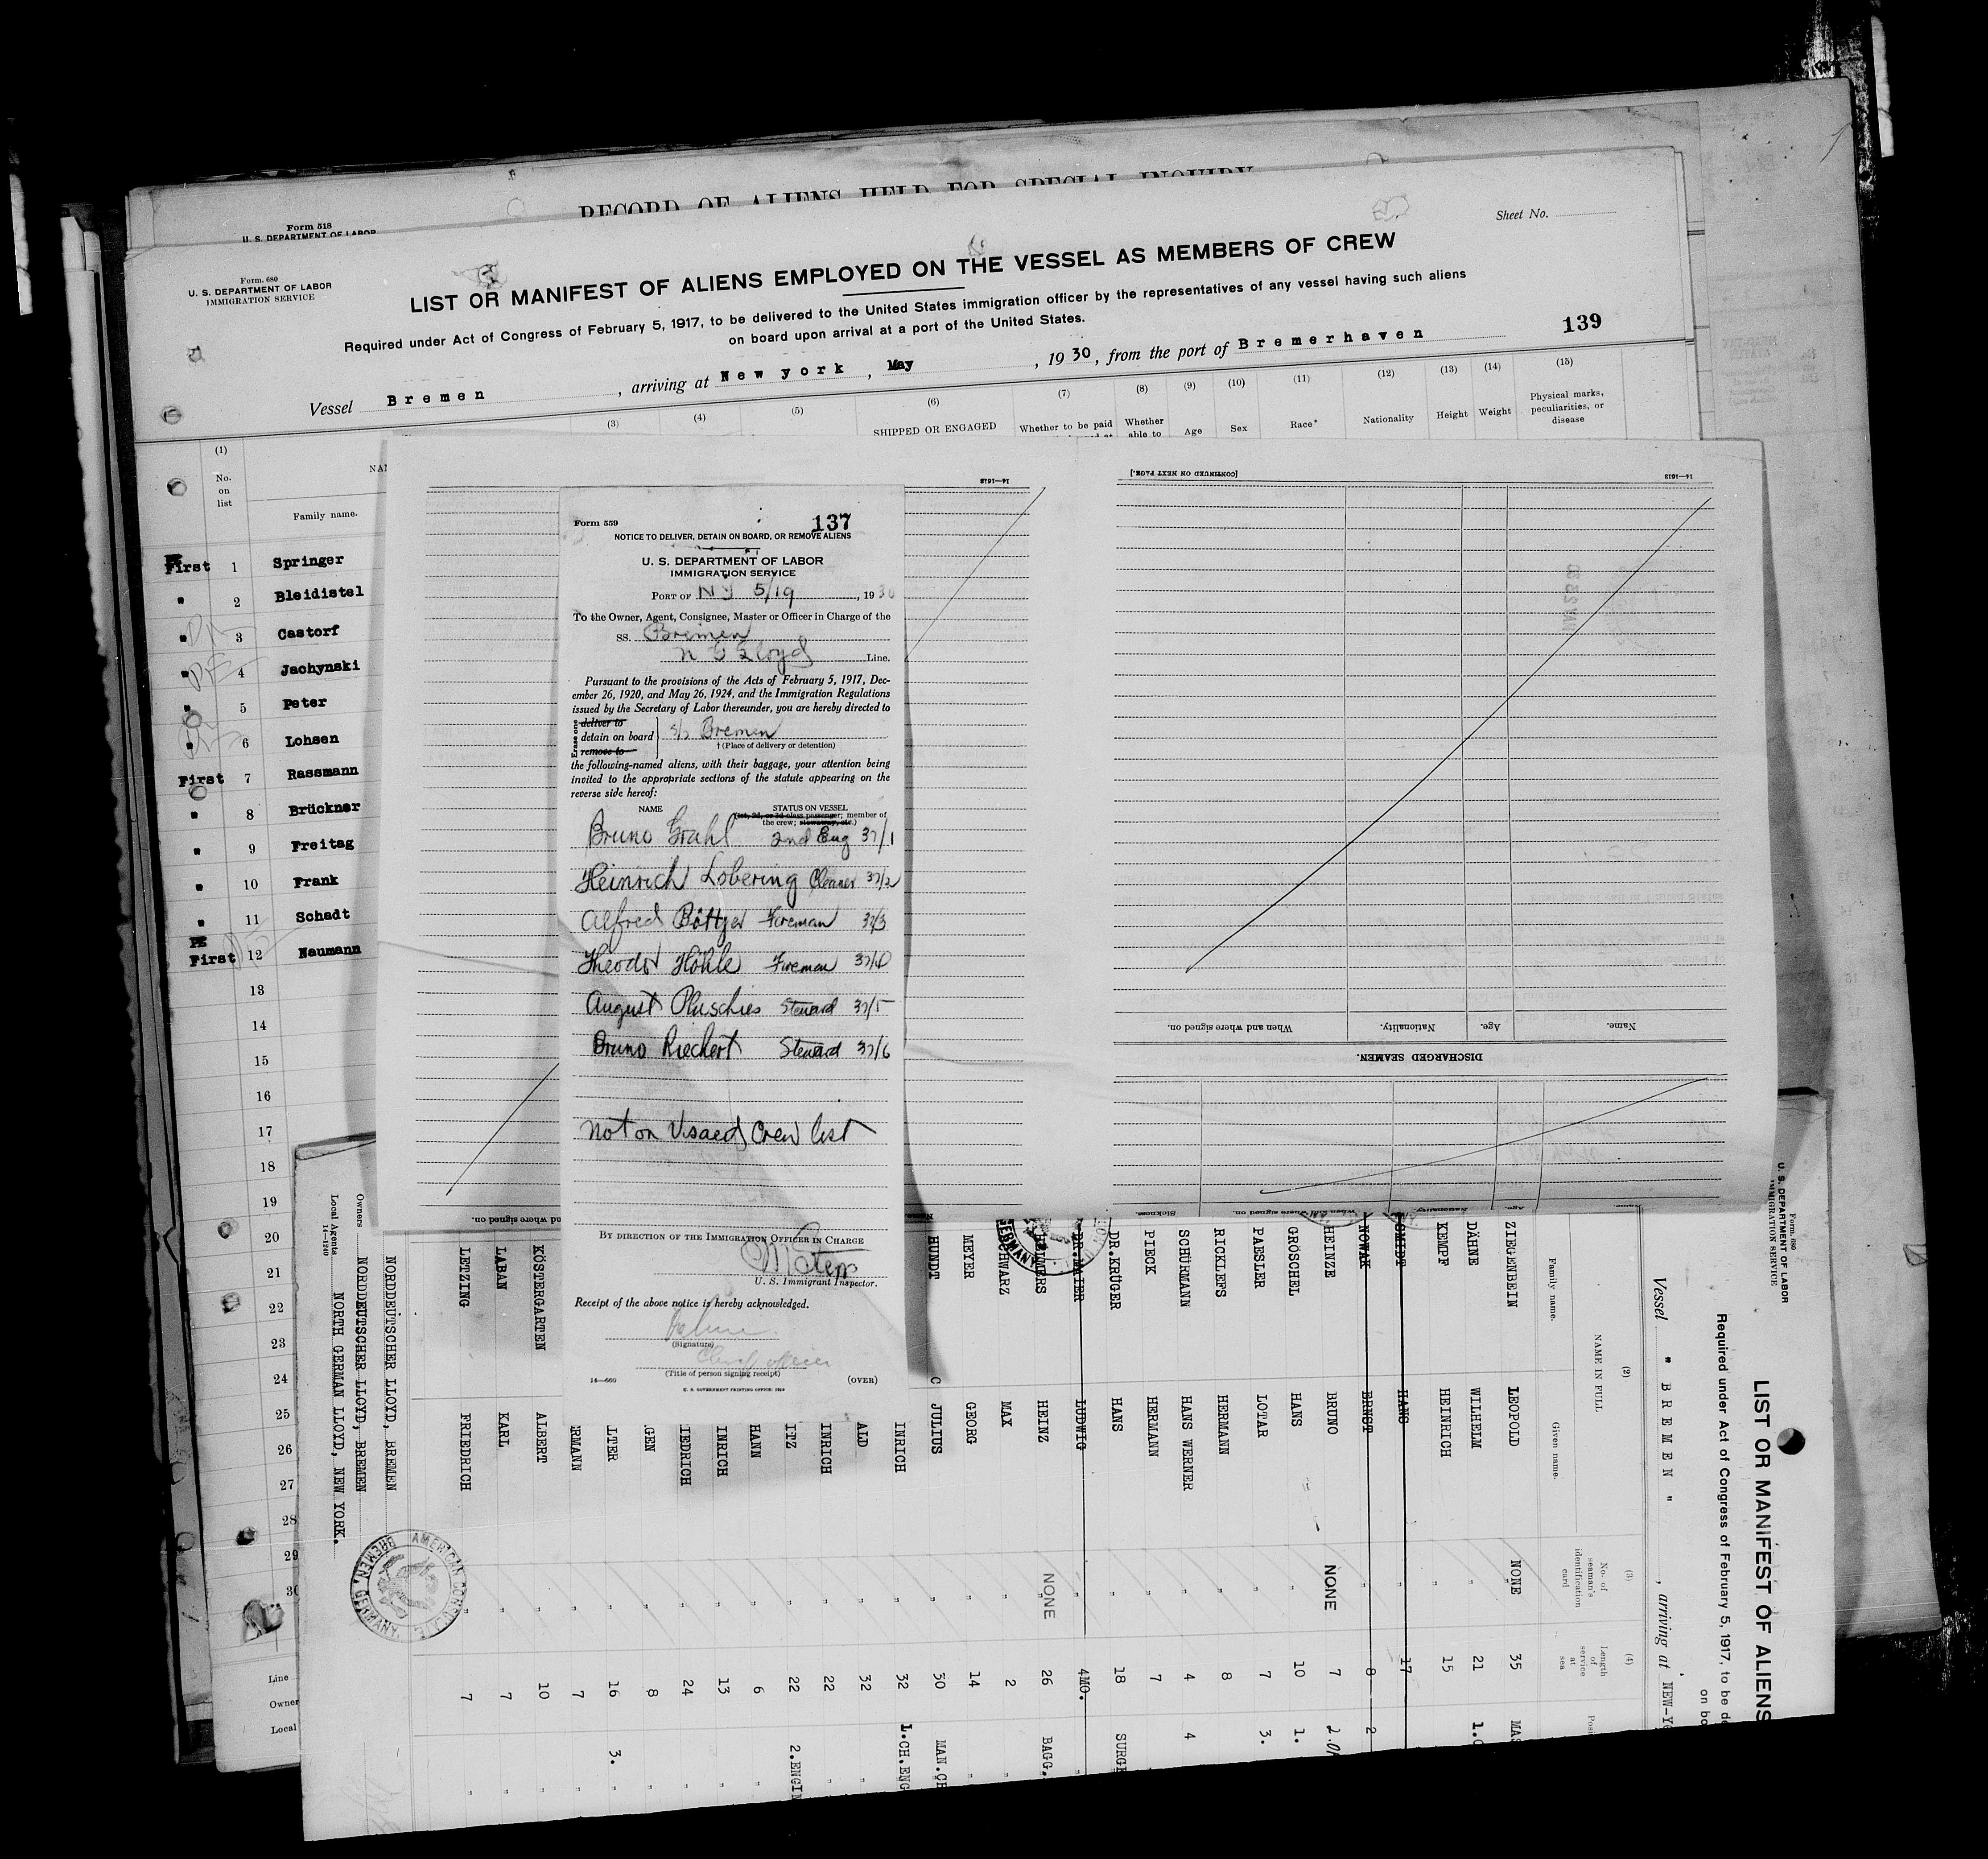 RECORD OF ALIENS HELD FOR SPECIAL INQUIRY
Form 518
U. S. DEPARTMENT OF LABOR
Sheet No.
Form 680
U. S. DEPARTMENT OF LABOR
IMMIGRATION SERVICE
LIST OR MANIFEST OF ALIENS EMPLOYED ON THE VESSEL AS MEMBERS OF CREW
Required under Act of Congress of February 5, 1917, to be delivered to the United States immigration officer by the representatives of any vessel having such aliens
on board upon arrival at a port of the United States.
139
Vessel Bremen, arriving at New york, May, 1930, from the port of Bremerhaven
(1) (3) (4) (5) (6) (7) (8) (9) (10) (11) (12) (13) (14) (15)
No. on list
Family name.
SHIPPED OR ENGAGED
Whether to be paid
Whether able to
Age
Sex
Race*
Nationality
Height
Weight
Physical marks, peculiarities, or disease
First 1 Springer
" 2 Bleidistel
" 3 Castorf
" 4 Jachynski
" 5 Peter
" 6 Lohsen
First 7 Rassmann
" 8 Brückner
" 9 Freitag
" 10 Frank
" 11 Schadt
First 12 Naumann
13
14
15
16
17
18
19
20
21
22
23
24
25
26
27
28
29
30
Line
Owner
Local
Form 559
137
NOTICE TO DELIVER, DETAIN ON BOARD, OR REMOVE ALIENS
U. S. DEPARTMENT OF LABOR
IMMIGRATION SERVICE
PORT OF N Y 5/19, 1930
To the Owner, Agent, Consignee, Master or Officer in Charge of the
SS. Bremen
N G Lloyd Line.
Pursuant to the provisions of the Acts of February 5, 1917, Dec-
ember 26, 1920, and May 26, 1924, and the Immigration Regulations
issued by the Secretary of Labor thereunder, you are hereby directed to
Erase one
deliver to
detain on board S/S Bremen
remove to
† (Place of delivery or detention)
the following-named aliens, with their baggage, your attention being
invited to the appropriate sections of the statute appearing on the
reverse side hereof:
NAME STATUS ON VESSEL
(1st, 2d, or 3d class passenger; member of
the crew; stowaway, etc.)
Bruno Grahl 2nd Eng 37/1
Heinrich Lobering Cleaner 37/2
Alfred Böttger Fireman 37/3
Theodor Höhle Fireman 37/4
August Pluschies Steward 37/5
Bruno Riechert Steward 37/6
not on Visaed Crew list
BY DIRECTION OF THE IMMIGRATION OFFICER IN CHARGE
U. S. Immigrant Inspector.
Receipt of the above notice is hereby acknowledged.
(Signature)
Chief officer
(Title of person signing receipt)
14—660
(OVER)
U. S. GOVERNMENT PRINTING OFFICE: 1929
14—1613
[CONTINUED ON NEXT PAGE.]
14—1613
DISCHARGED SEAMEN.
Name.
Age.
Nationality.
When and where signed on.
Name.
Sickness.
When and where signed on.
Nationality.
Age.
Name.
Form 680
U. S. DEPARTMENT OF LABOR
IMMIGRATION SERVICE
LIST OR MANIFEST OF ALIENS
Required under Act of Congress of February 5, 1917, to be de
on bo
Vessel " BREMEN ", arriving at NEW-Y
(2) (3) (4)
NAME IN FULL
Family name.
Given name.
No. of seaman's identification card
Length of service at sea
ZIEGENBEIN LEOPOLD NONE 35 MAS
DÄHNE WILHELM " 21 1.O
KEMPF HEINRICH " 15
SCHMIDT HANS " 17
NOWAK ERNST " 8 2
HEINZE BRUNO NONE 7 2.O
GRÖSCHEL HANS " 10 1.
PAESLER LOTAR " 7 3.
RICKLEFS HERMANN " 8
SCHÜRMANN HANS WERNER " 4 4
PIECK HERMANN " 7
DR.KRÜGER HANS " 18 SURGE
DR.MAIER LUDWIG " 4MO. "
HELMERS HEINZ NONE 26 BAGG.
SCHWARZ MAX " 2 "
MEYER GEORG " 14 "
HUNDT JULIUS " 30 MAN.CH
INRICH " 32 L.CH.ENG
ALD " 32 "
INRICH " 22 "
ITZ " 22 2.ENGIN
HANN " 6 "
INRICH " 13 "
IEDRICH " 24 "
GEN " 8 "
LTER " 16 3.
RMANN " 7 "
KÖSTERGARTEN ALBERT " 10 "
LABAN KARL " 7 "
LETZING FRIEDRICH " 7 "
NORDDEUTSCHER LLOYD, BREMEN
Owners NORDDEUTSCHER LLOYD, BREMEN
Local Agents NORTH GERMAN LLOYD, NEW YORK.
14—1240
AMERICAN CONSULATE
BREMEN, GERMANY.
GERMANY